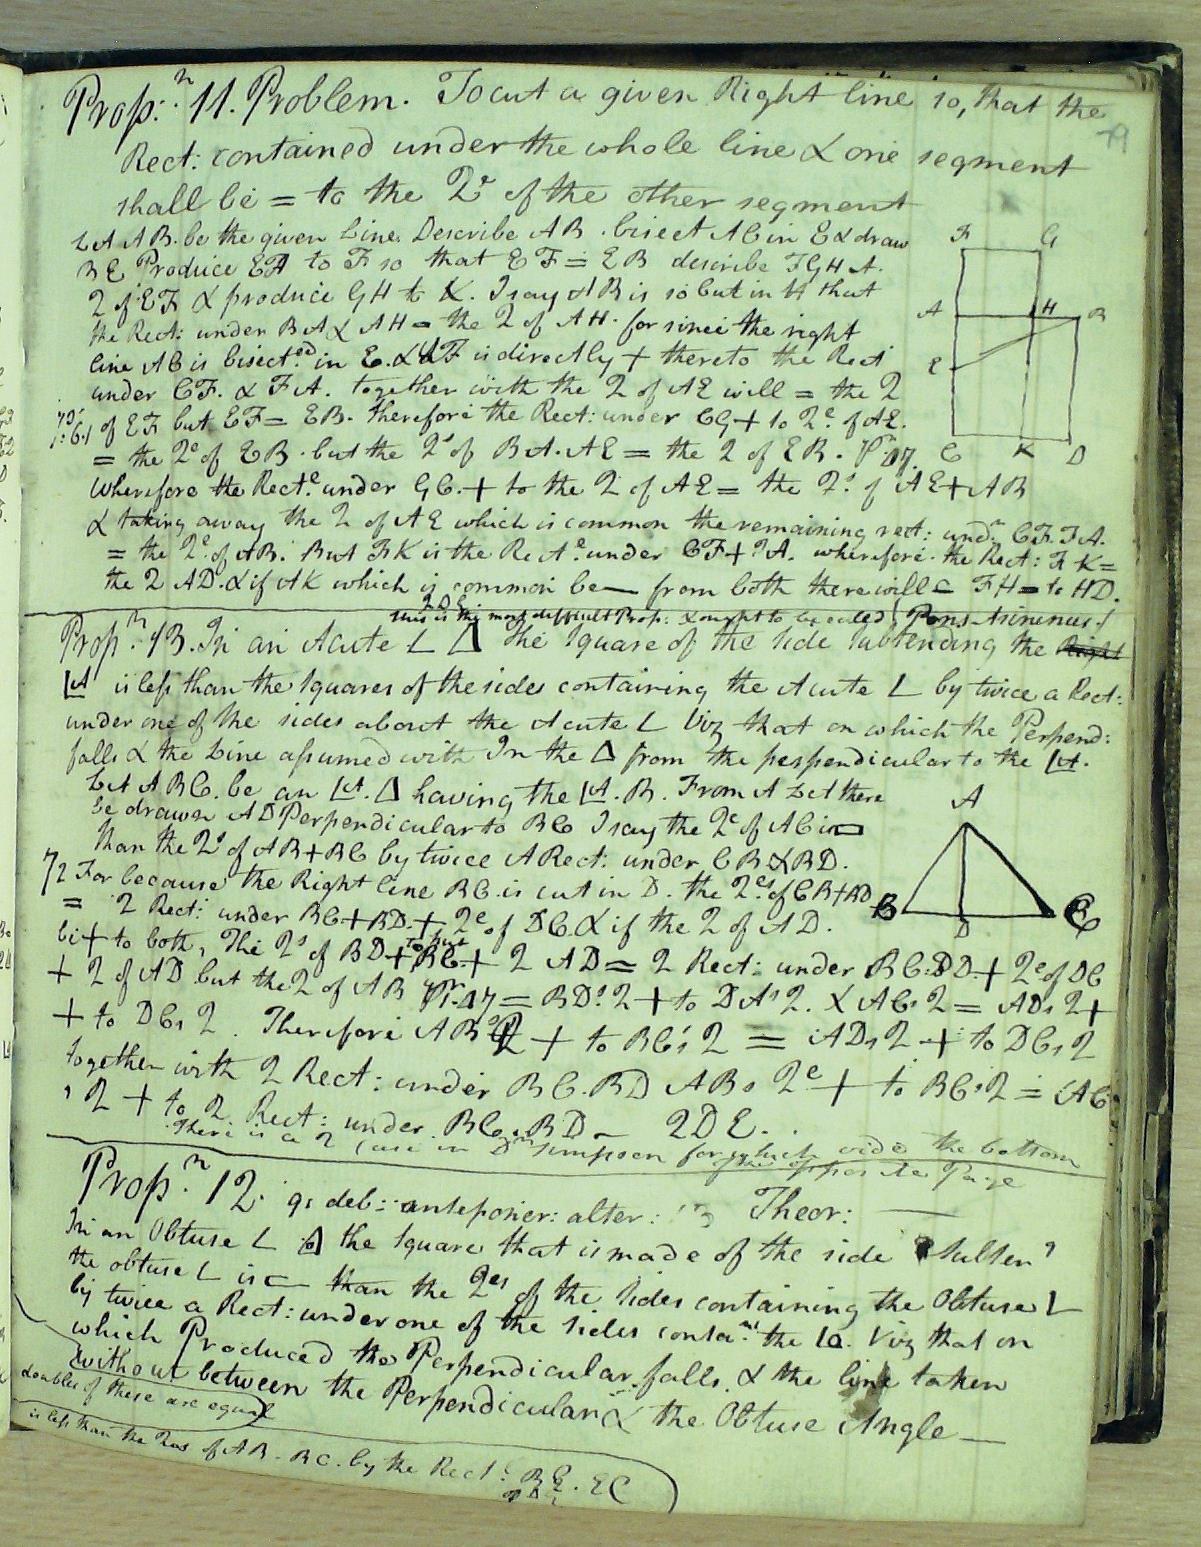 Prop:n 11. Problem. To cut a given Right line so, that the
79
Rect: contained under the whole line & one segment
shall be = to the 2e of the other segment
Let AB. be the given Line. Describe AB. bisect AC in E & draw
BE Produce EA to F so that EF = EB describe FGHA.
2 of EF & produce GH to K. I say AB is so but in H that
the Rect: under BA & AH = the 2 of AH. for since the right
line AC is bisected in E. & AF is directly + thereto the Rect
under CF. & FA. together with the 2 of AE will = the 2
of EF but EF = EB. therefore the Rect: under CG + to 2e of AE.
= the 2e of EB. but the 2s of BA. AE = the 2 of EB. Pn 47.
Wherefore the Recte under GC. + to the 2 of AE = the 2s of AE + AB
& taking away the 2 of AE which is common the remaining rect: undr CF. FA.
= the 2e of AB. But FK is the Recte under CF + FA. wherefore the Rect: FK =
the 2 AD. & if AK which is common be — from both there will = FH = to HD.
2DE
this is the most difficult Prop: & ought to be called Pons Asininus!
Prop:n 13. In an Acute L Δ The square of the side subtending the Right
LA is less than the squares of the sides containing the Acute L by twice a Rect:
under one of the sides about the Acute L Viz that on which the Perpend:
falls & the Line assumed with In the Δ from the perpendicular to the LA.
Let ABC. be an LA. Δ having the LA. B. From A Let there
be drawn AD Perpendicular to BC I say the 2e of AC is
than the 2s of AB + BC by twice A Rect: under CB & BD.
72 For because the Right line BC. is cut in D. the 2es of CB + BD
= 2 Rect: under BC + BD. + 2e of DC & if the 2 of AD.
be + to both, The 2s of BD + BC. + 2 AD = 2 Rect: under BC. BD. + 2e of DC
+ 2 of AD but the 2 of AB Pr. 47 = BDs 2 + to DAs 2. & ACs 2 = ADs 2 +
+ to DCs 2. Therefore ABs 2 + to BCs 2 = ADs 2 + to DCs 2
together with 2 Rect: under BC. BD ABs 2e + to BCs 2 = (AC
s 2 + to 2 Rect: under BC. BD — 2DE.
There is a 2 Case in Dr Simpson for which vide the bottom
of the opposite Page
Prop:n 12. qs deb:: anteponer: alter: Theor:
In an Obtuse L Δ the square that is made of the side
the obtuse L is than the 2es of the sides containing the Obtuse L
by twice a Rect: under one of the sides contang the Lo. Viz that on
which Produced the Perpendicular falls. & the line taken
without between the Perpendicular & the Obtuse Angle —
doubles of these are equal
is less than the 2es of AB. BC. by the Rect: BE. EC
F G
A H B
E
C K D
A
B D C